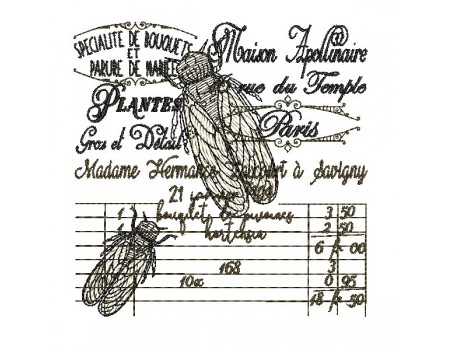 SPECIALITE DE BOUQUETS
ET
PARURE DE MARIÉE
Maison Apollinaire
rue du Temple
PLANTES
Paris
Gros et Détail
Madame Hermance à Savigny
21
1 bouquets 3 50
1 hortensia 2 50
6 fr 00
168 3
10x 0 95
18 fr 50